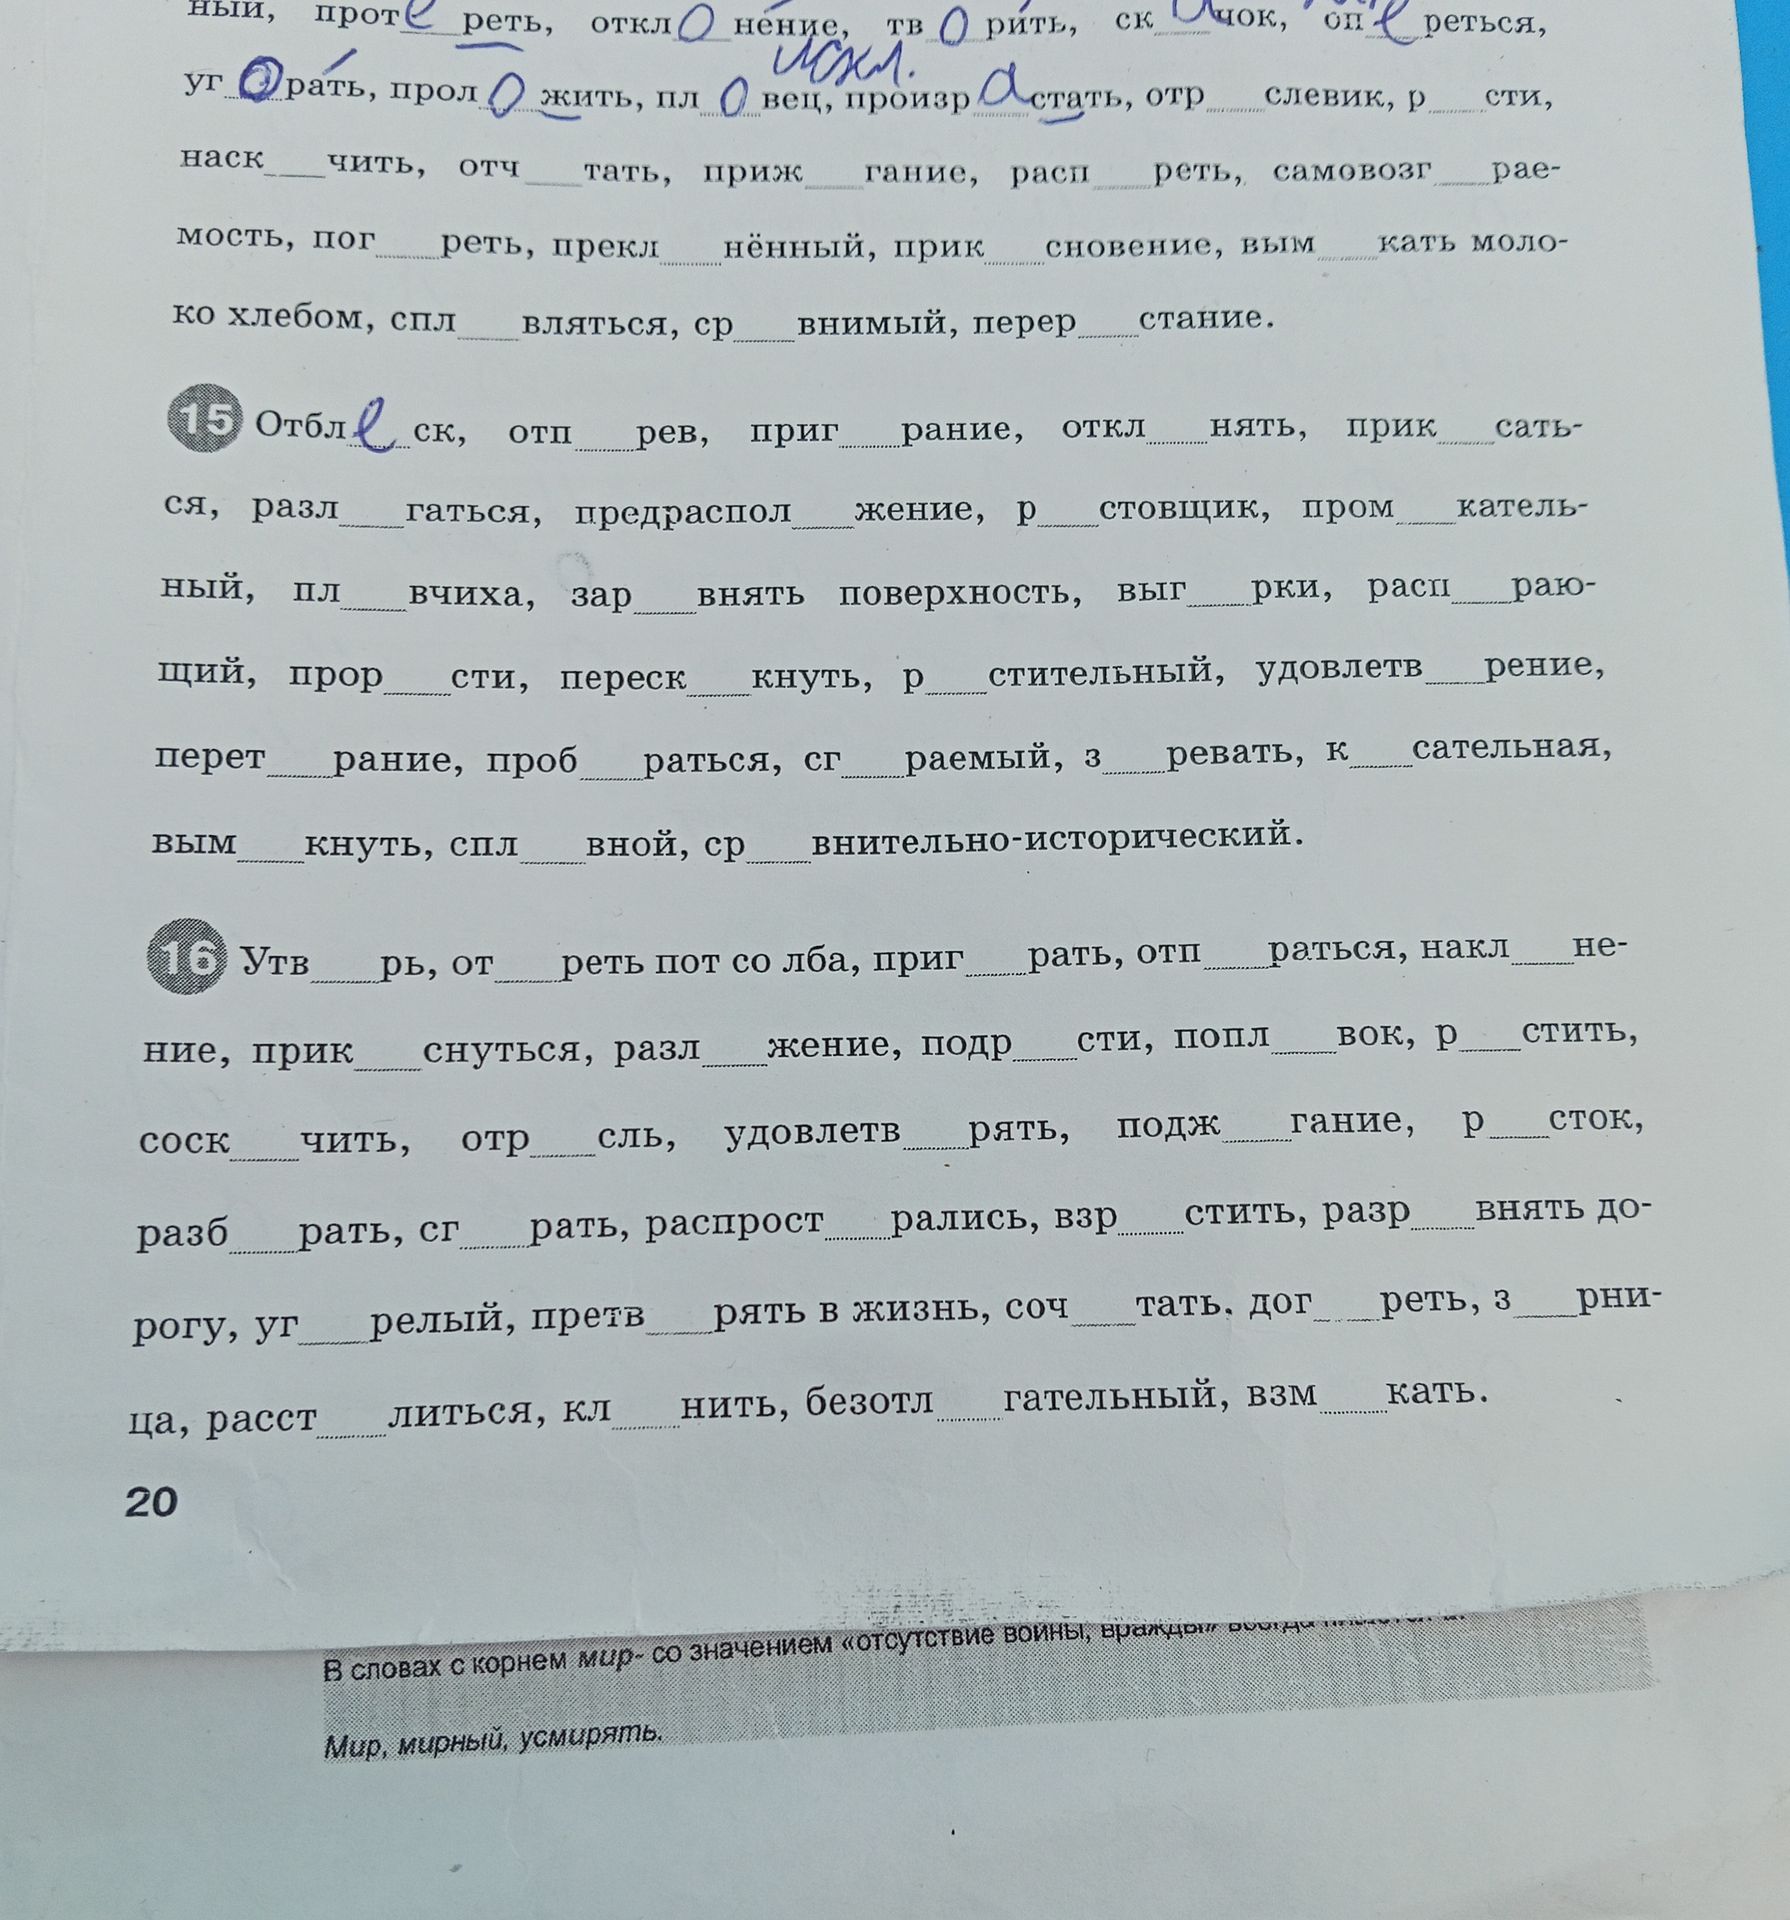 ный, проте реть, откло нение, тв о рить, ск а чок, оп е реться,
искл.
уг о рать, прол о жить, пл о вец, произр а стать, отр___слевик, р___сти,
наск___чить, отч___тать, приж___гание, расп___реть, самовозг___рае-
мость, пог___реть, прекл___нённый, прик___сновение, вым___кать моло-
ко хлебом, спл___вляться, ср___внимый, перер___стание.
15 Отбл е ск, отп___рев, приг___рание, откл___нять, прик___сать-
ся, разл___гаться, предраспол___жение, р___стовщик, пром___катель-
ный, пл___вчиха, зар___внять поверхность, выг___рки, расп___раю-
щий, прор___сти, переск___кнуть, р___стительный, удовлетв___рение,
перет___рание, проб___раться, сг___раемый, з___ревать, к___сательная,
вым___кнуть, спл___вной, ср___внительно-исторический.
16 Утв___рь, от___реть пот со лба, приг___рать, отп___раться, накл___не-
ние, прик___снуться, разл___жение, подр___сти, попл___вок, р___стить,
соск___чить, отр___сль, удовлетв___рять, подж___гание, р___сток,
разб___рать, сг___рать, распрост___рались, взр___стить, разр___внять до-
рогу, уг___релый, претв___рять в жизнь, соч___тать, дог___реть, з___рни-
ца, расст___литься, кл___нить, безотл___гательный, взм___кать.
20
В словах с корнем мир- со значением «отсутствие войны, вражды» всегда
Мир, мирный, усмирять.